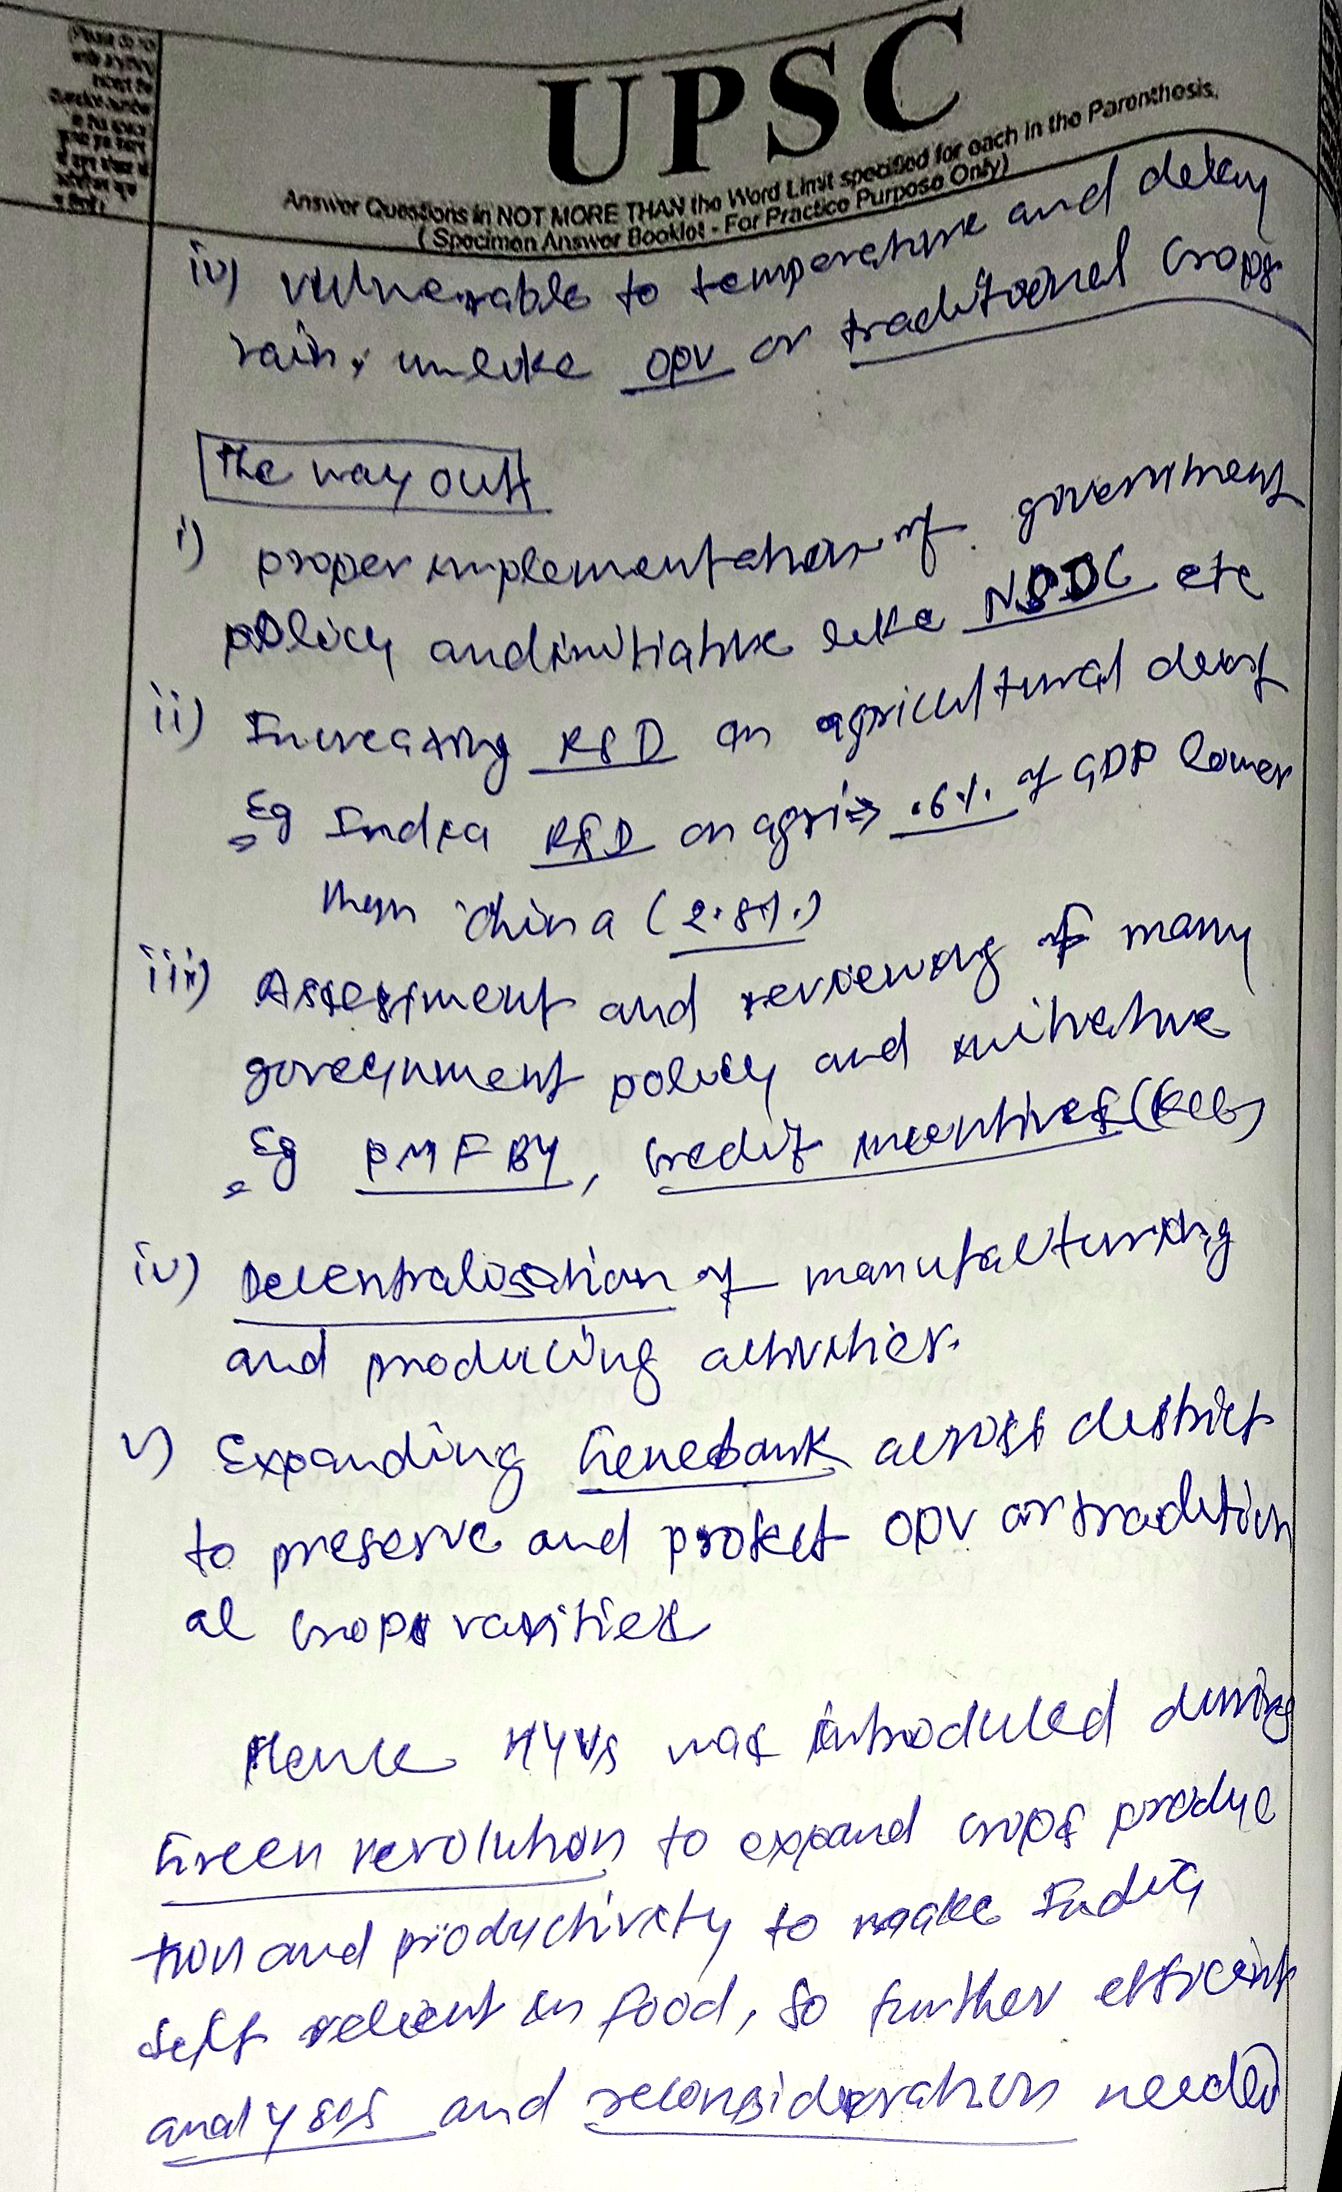 (Please do not
write anything
except the
question number
in this space
UPSC
Answer Questions in NOT MORE THAN the Word Limit specified for each in the Parenthesis.
( Specimen Answer Booklet - For Practice Purpose Only)
iv) vulnerable to temperature and delay
rain, unlike OPV or traditional crops
The way out
i) proper implementation of government
policy and initiative like etc
ii) Increasing R&D on agricultural devt
Eg India R&D on agri → .6% of GDP lower
then china (2.8%)
iii) Assessment and reviewing of many
government policy and initiative
Eg PMFBY, credit incentives (KCC)
iv) Decentralisation of manufacturing
and producing activities.
v) Expanding Genebank across district
to preserve and protect OPV or tradition
al crops varities
Hence HYVs was introduced during
Green revolution to expand crops produc
tion and productivity to make India
self relient in food, so further efficient
analyses and reconsideration needed